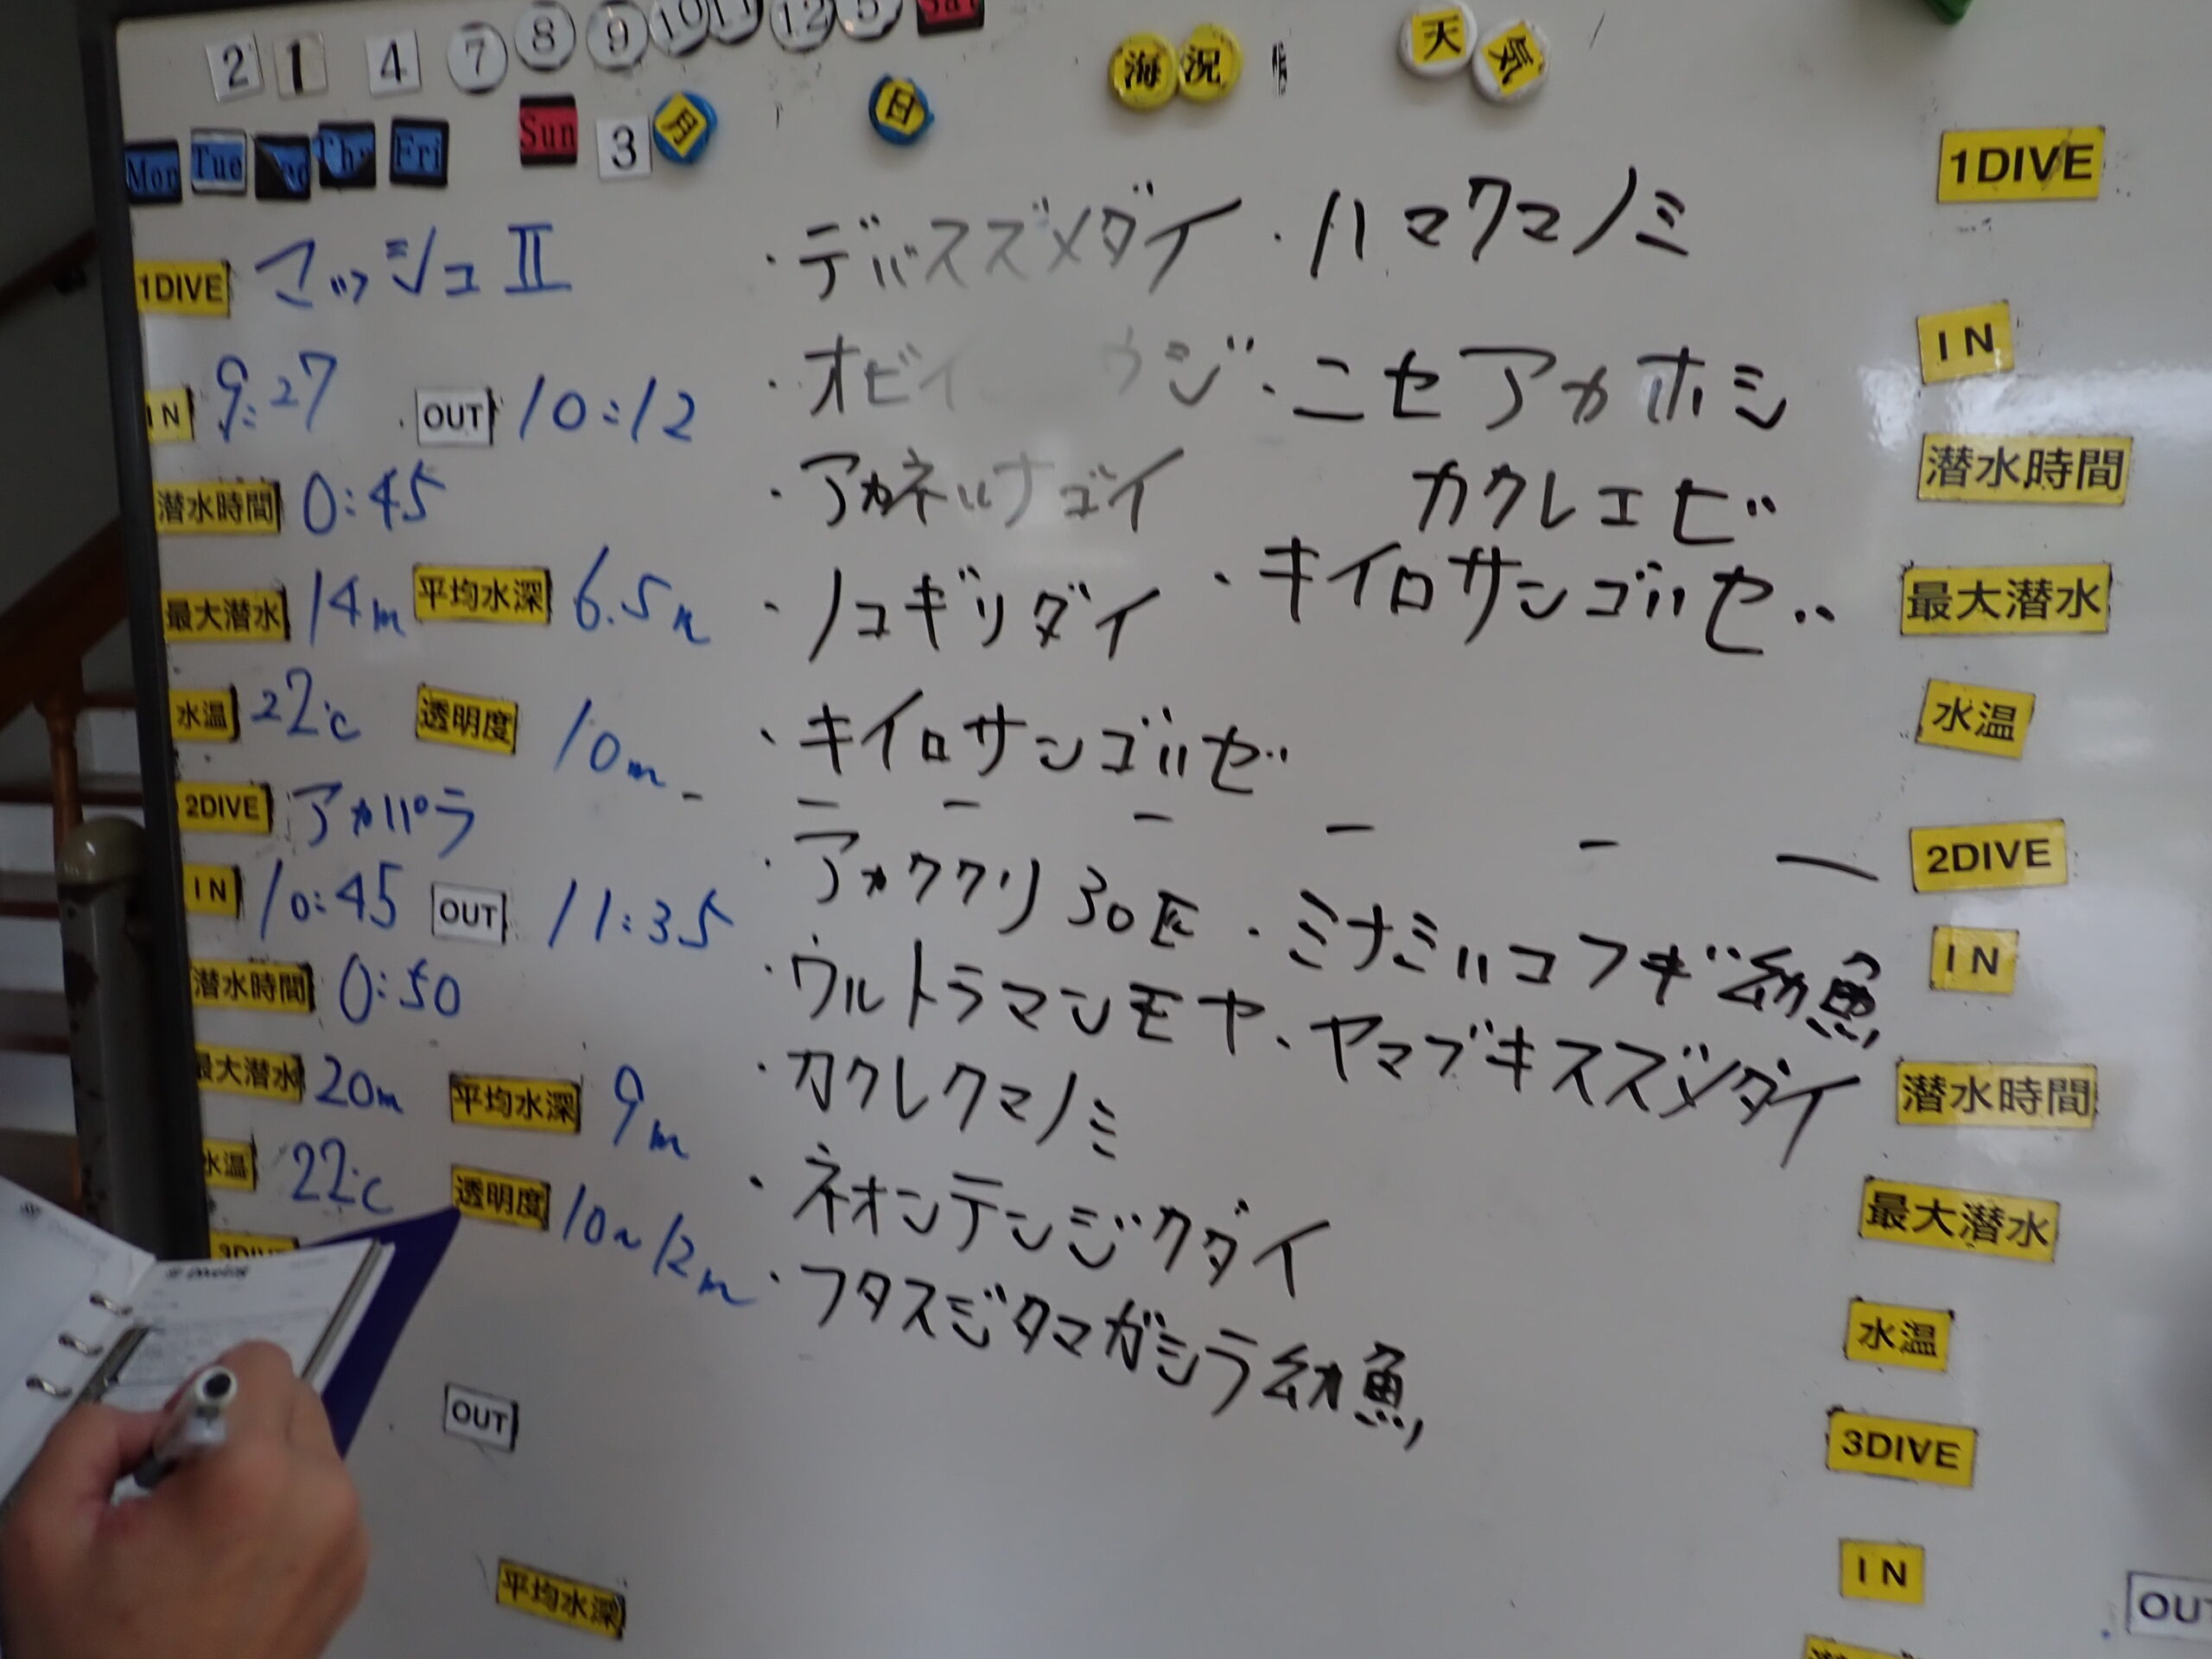 2 1 4 7 8 9 10 11 12 5 Sat
海況 天気
Mon Tue Wed Thu Fri Sun 3 月 日
1DIVE マッシュⅡ
IN 9:27 OUT 10:12
潜水時間 0:45
最大潜水 14m 平均水深 6.5m
水温 22℃ 透明度 10m
2DIVE アカパラ
IN 10:45 OUT 11:35
潜水時間 0:50
最大潜水 20m 平均水深 9m
水温 22℃ 透明度 10~12m
3DIVE
OUT
平均水深
・デバスズメダイ ・ハマクマノミ
・オビイ ウジ ・ニセアカホシ
カクレエビ
・アカネハナゴイ
・ノコギリダイ ・キイロサンゴハゼ‥
・キイロサンゴハゼ‥
・アカククリ30匹 ・ミナミハコフギ幼魚
・ウルトラマンモヤ、ヤマブキスズメダイ
・カクレクマノミ
・ネオンテンジクダイ
・フタスジタマガシラ幼魚
1DIVE
IN
潜水時間
最大潜水
水温
2DIVE
IN
潜水時間
最大潜水
水温
3DIVE
IN
OUT